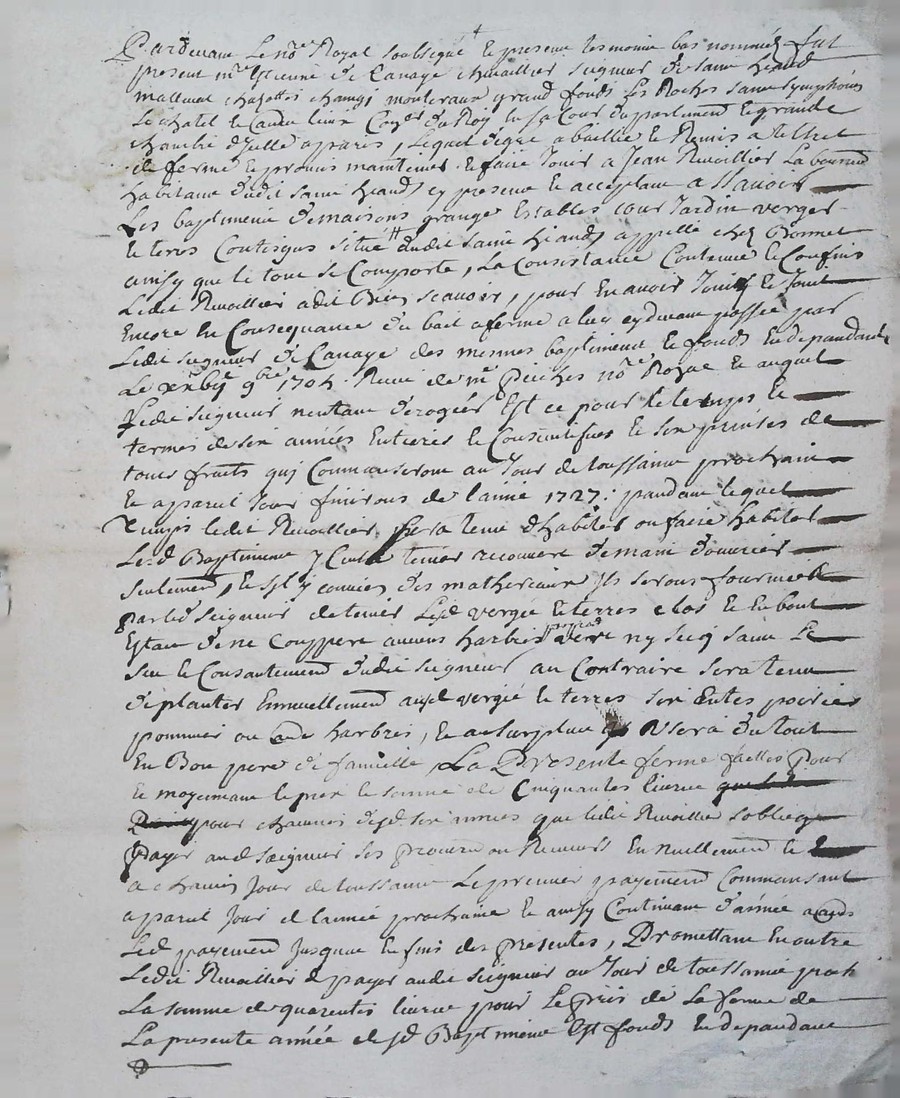 Pardevant Le nre Royal soubsigné et presents tesmoins bas nommés fut
present mre Estienne de Canaye chevallier seigneur de saint heand
malleval chazottes changi montceraux grand fonds Les Roches saint symphorien
Le chatel et autres lieux Coner du Roy en sa Cour du parlement et grande
chambre d'icelle a paris, Lequel de gré a baillié et Remis a tiltre
de ferme et promis maintenir et faire Jouir a Jean Rivollier
habitant dudit saint heand cy present et acceptant a scavoir
Les baptiments de maisons grange Estables cour Jardin verger
et terres Contigus situé audit saint heand appellé chez Bonnet
ainsy que le tout se Comporte, La Consistance Contenue et Confins
Ledit Rivollier a dit Bien scavoir, pour En avoir Jouit et Jouit
Encore En Consequance du bail a ferme a luy cydevant passée par
Ledit seigneur de Canaye des mesmes baptiments et fonds En depandants
Le 9bre 1704 Receu de me nre Royal et auquel
Ledit seigneur n'entant deroger Est ce pour Le temps et
termes de six années Entieres et Consecutifves et six prinses de
tous fruits qui Commanseront au Jour de toussaint prochain
Et a pareil Jour finirons de l'année 1727: pandant lequel
Temps ledit Rivollier sera tenu d'habiter ou faire habiter
Lesd Baptiments y tenir recouvert de main d'ouvrier
seulement, et s'il y convien des matheriaux ils serons fournies
par led seigneur de tenir Lesd vergie et terres clos et En bon
Estat de ne Couppere aucuns harbres vere ny secq sans Le
sceu et Consantement dudit seigneur au Contraire sera tenu
de planter Ennuellement ausd vergié et terres six Entes poiriers
pommier ou autre harbres, Et au surplus Usera du tout
En Bon pere de famille, La Presente ferme faitte pour
et moyennant le prix et somme de Cinquantes livres
pour chacunes desd six années que ledit Rivollier s'oblige
payer aud seigneur ses procureur ou Receveurs Ennuellement et
a chacun Jour de toussaint Le premier payement Commansant
a pareil Jour de l'année prochaine et ainsy Continuant d'année a autre
Led payement Jusques En fins des presentes, Promettant En outre
Ledit Rivollier de payer audit seigneur au Jour de toussaint proch
La somme de quarentes livres pour Le prix de La ferme de
La presente année desd Baptiments Est fonds En depandant